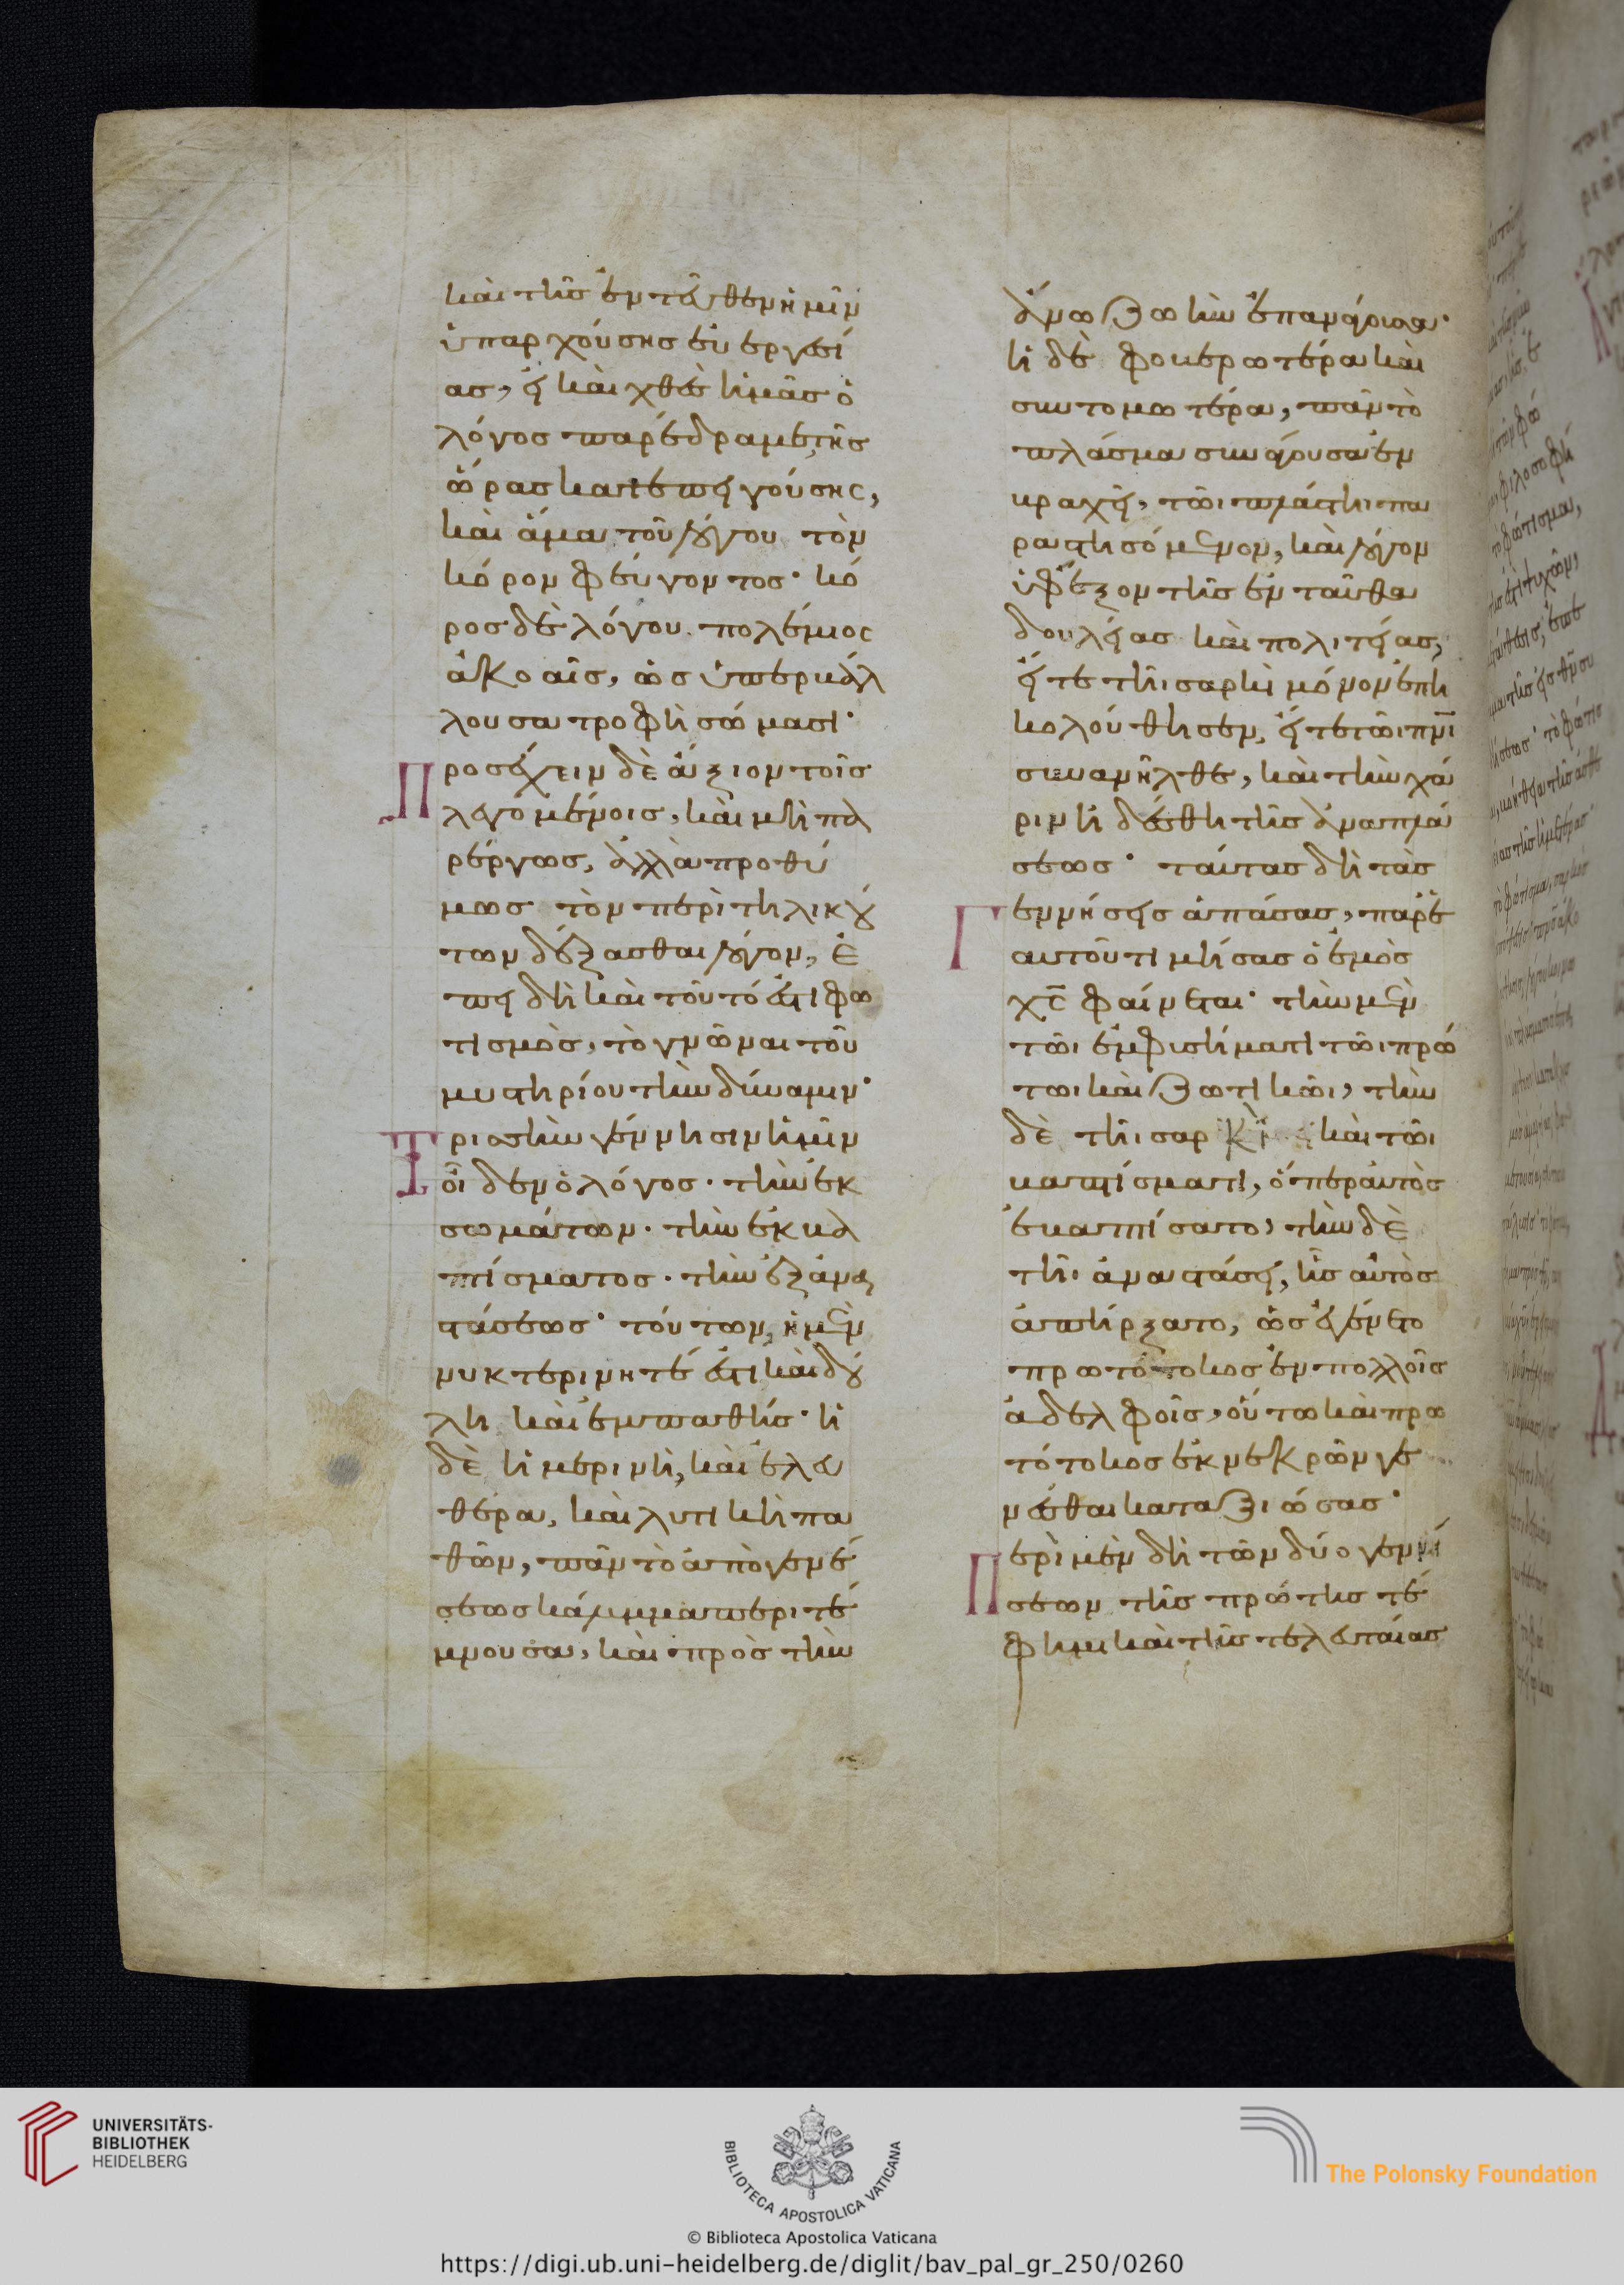 καὶ τῆς ἐντεῦθεν ἡμῖν
ὑπαρχούσης εὐεργεσί
ας, εἰ καὶ χθὲς ἡμᾶς ὁ
λόγος παρέδραμε τῆς
ὥρας κατεπειγούσης,
καὶ ἅμα τοῦ λόγου τὸν
κόρον φεύγοντος· κό
ρος δὲ λόγου πολέμιος
ἀκοαῖς, ὡς ὑπερβάλ
λουσα τροφὴ σώμασι·
Προσέχειν δὲ ἄξιον τοῖς
λεγομένοις, καὶ μὴ πα
ρέργως, ἀλλὰ προθύ
μως τὸν περὶ τηλικού
των δέξασθαι λόγον, ἐ
πεὶ δὴ καὶ τοῦτό ἐστι φω
τισμὸς, τὸ γνῶναι τοῦ
μυστηρίου τὴν δύναμιν·
Τρισσὴν γέννησιν ἡμῖν
οἶδεν ὁ λόγος· τὴν ἐκ
σωμάτων· τὴν ἐκ βα
πτίσματος· τὴν ἐξ ἀνα
στάσεως· τούτων, ἡ μὲν
νυκτερινή τέ ἐστι καὶ δού
λη καὶ ἐμπαθής· ἡ
δὲ ἡμερινὴ, καὶ ἐλευ
θέρα, καὶ λυτικὴ πα
θῶν, πᾶν τὸ ἀπὸ γενέ
σεως κάλυμμα περιτέ
μνουσα, καὶ πρὸς τὴν
ἄνω ζωὴν ἐπανάγουσα·
ἡ δὲ φοβερωτέρα καὶ
συντομωτέρα, πᾶν τὸ
πλάσμα συνάγουσα ἐν
βραχεῖ, τῶι πλάστηι πα
ραστησόμενον, καὶ λόγον
ὑφέξον τῆς ἐνταῦθα
δουλείας καὶ πολιτείας,
εἴτε τῆι σαρκὶ μόνον ἐπη
κολούθησεν, εἴτε τῶι πνι
συνανῆλθε, καὶ τὴν χά
ριν ἠδέσθη τῆς ἀναπλά
σεως· ταύτας δὴ τὰς
Γεννήσεις ἁπάσας, παρ' ἑ
αυτοῦ τιμήσας ὁ ἐμὸς
χς φαίνεται· τὴν μὲν
τῶι ἐμφυσήματι τῶι πρώ
τωι καὶ ζωτικῶι, τὴν
δὲ τῆι σαρκὶ καὶ τῶι
βαπτίσματι, ὅπερ αὐτὸς
ἐβαπτίσατο, τὴν δὲ
τῆι ἀναστάσει, ἧς αὐτὸς
ἀπήρξατο, ὡς ἐγένετο
πρωτότοκος ἐν πολλοῖς
ἀδελφοῖς, οὕτω καὶ πρω
τότοκος ἐκ νεκρῶν γε
νέσθαι καταξιώσας·
Περὶ μὲν δὴ τῶν δύο γεννή
σεων τῆς πρώτης τέ
φημι καὶ τῆς τελευταίας
UNIVERSITÄTS-
BIBLIOTHEK
HEIDELBERG
BIBLIOTECA APOSTOLICA VATICANA
The Polonsky Foundation
© Biblioteca Apostolica Vaticana
https://digi.ub.uni-heidelberg.de/diglit/bav_pal_gr_250/0260